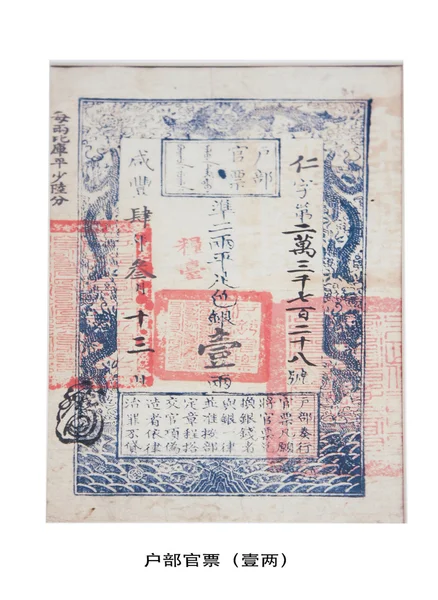 每兩比庫平少陸分
戶部
官票
仁字第二萬三千七百二十八號
準二兩平足色銀壹兩
咸豐肆年叁月十三日
戶部奏行
官票凡願
將官票兌
換銀錢者
與銀一律
並准按部
定章程搭
交官項偽
造者依律
治罪不貸
户部官票（壹两）